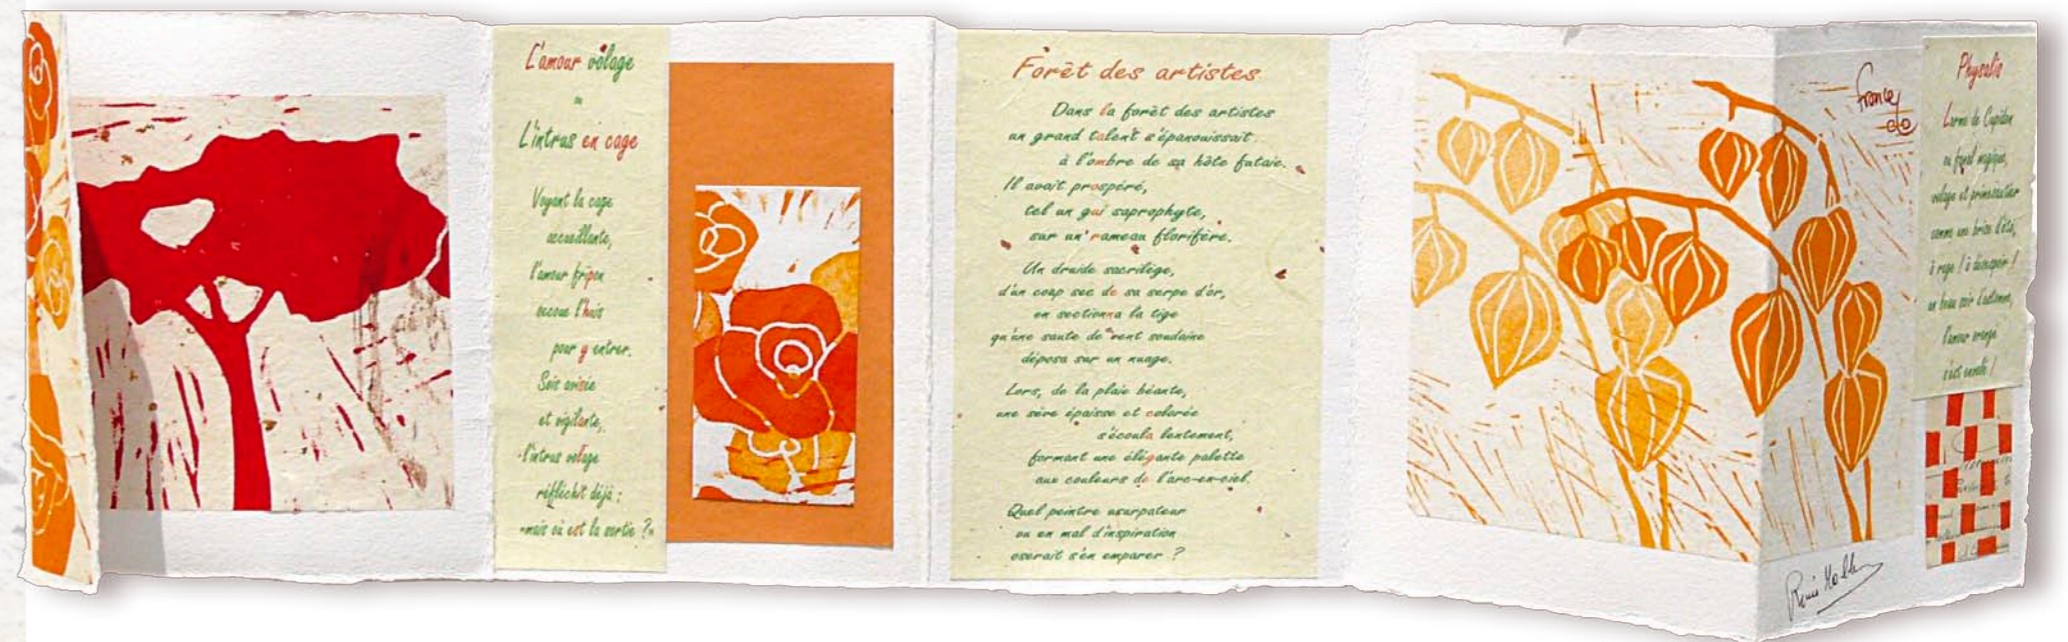 L'amour volage
ou
L'intrus en cage
Voyant la cage
accueillante,
l'amour fripon
secoue l'huis
pour y entrer.
Sois avisée
et vigilante,
l'intrus volage
réfléchit déjà :
«mais où est la sortie ?»
Forêt des artistes
Dans la forêt des artistes
un grand talent s'épanouissait
à l'ombre de sa hôte futaie.
Il avait prospéré,
tel un gui saprophyte,
sur un rameau florifère.
Un druide sacrilège,
d'un coup sec de sa serpe d'or,
en sectionna la tige
qu'une saute de vent soudaine
déposa sur un nuage.
Lors, de la plaie béante,
une sève épaisse et colorée
s'écoula lentement,
formant une élégante palette
aux couleurs de l'arc-en-ciel.
Quel peintre usurpateur
ou en mal d'inspiration
oserait s'en emparer ?
Physalis
Larme de Cupidon
ou fanal magique,
volage et primesautier
comme une brise d'été,
ô rage ! ô désespoir !
un beau soir d'automne,
l'amour orange
s'est envolé !